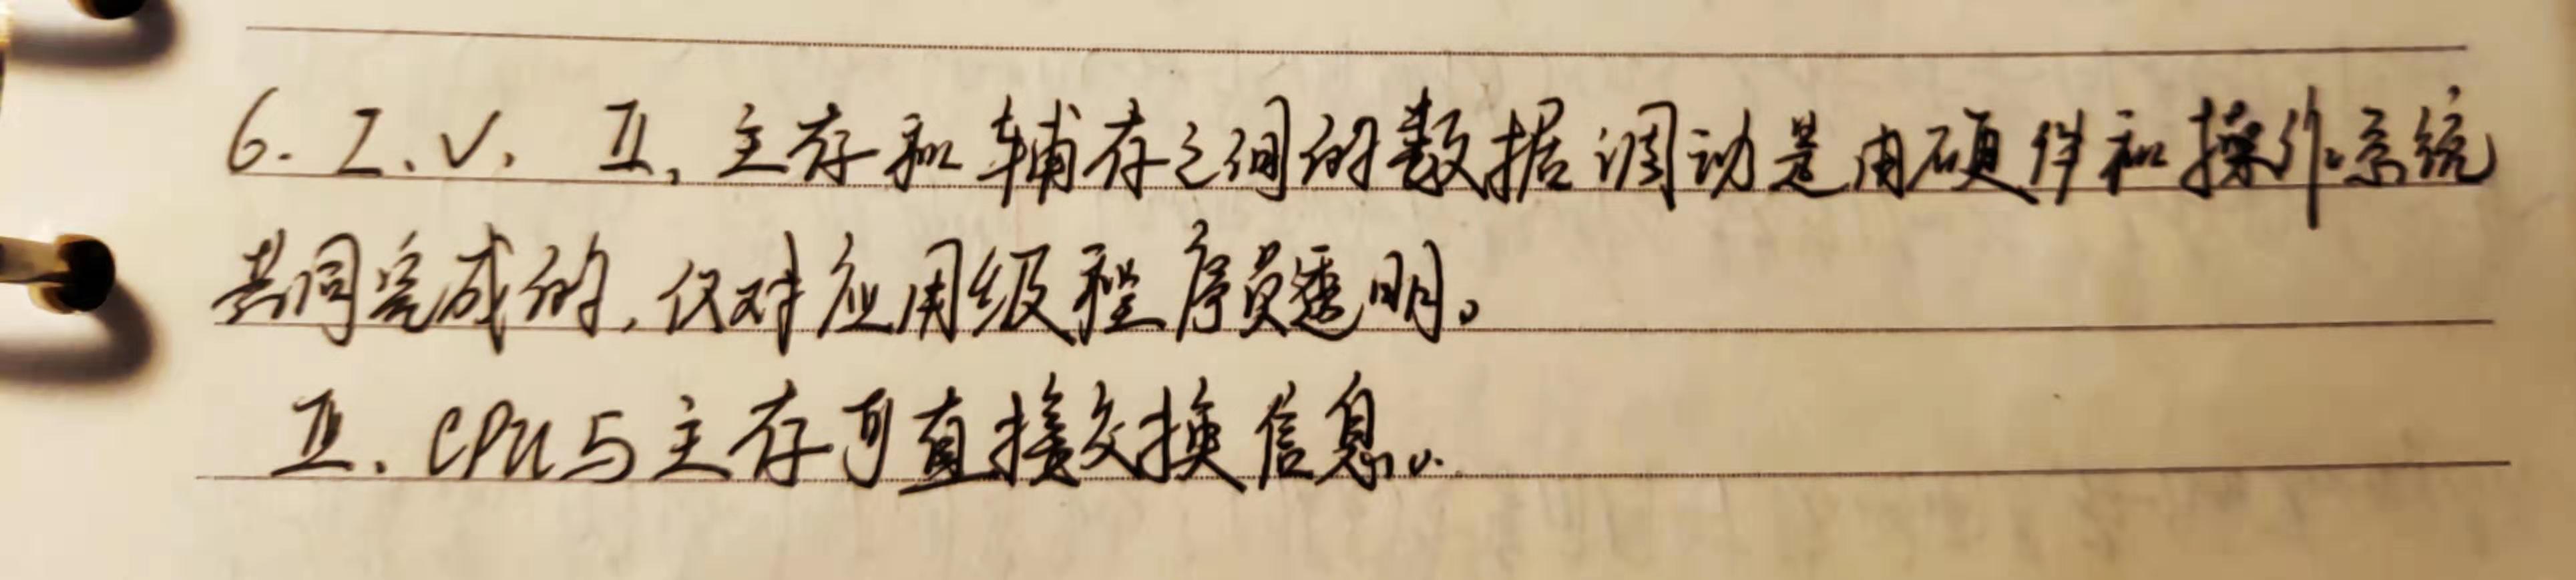 6. I、V. II、主存和辅存之间的数据调动是由硬件和操作系统
共同完成的,仅对应用级程序员透明。
II、CPU与主存可直接交换信息。